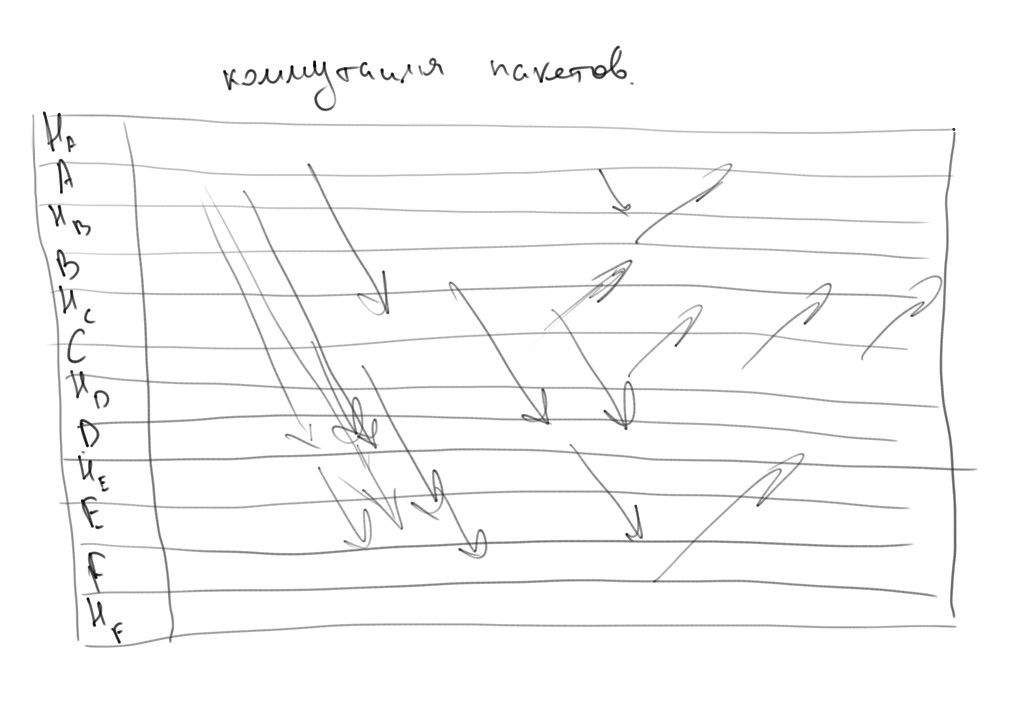 коммутация пакетов.
H_A
A
H_B
B
H_C
C
H_D
D
H_E
E
F
H_F